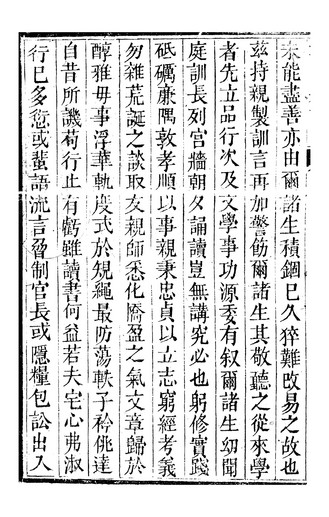 未能盡善亦由爾諸生積錮已久猝難改易之故也
茲持親製訓言再加警飭爾諸生其敬聽之從來學
者先立品行次及文學事功源委有叙爾諸生幼聞
庭訓長列宮牆朝夕誦讀豈無講究必也躬修實踐
砥礪廉隅敦孝順以事親秉忠貞以立志窮經考義
勿雜荒誕之談取友親師悉化驕盈之氣文章歸於
醇雅毋事浮華軌度式於䂓繩最防蕩軼子衿佻達
自昔所譏苟行止有虧雖讀書何益若夫宅心弗淑
行已多愆或蜚語流言脅制官長或隱糧包訟出入